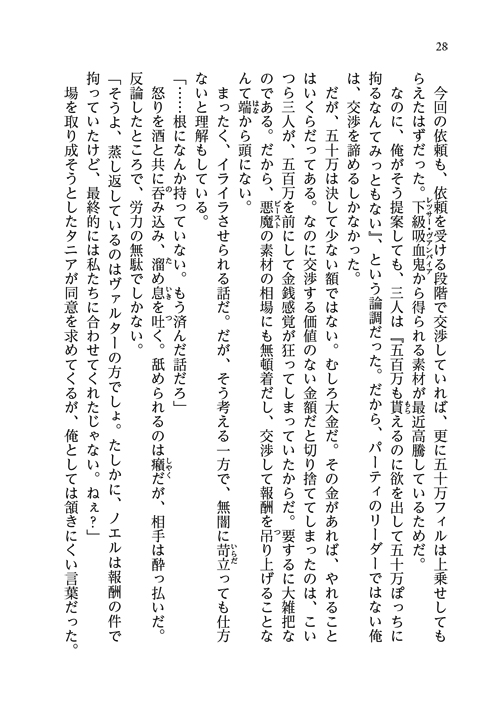 28
今回の依頼も、依頼を受ける段階で交渉していれば、更に五十万フィルは上乗せしても
らえたはずだった。下級吸血鬼から得られる素材が最近高騰しているためだ。
なのに、俺がそう提案しても、三人は『五百万も貰えるのに欲を出して五十万ぽっちに
拘るなんてみっともない』、という論調だった。だから、パーティのリーダーではない俺
は、交渉を諦めるしかなかった。
だが、五十万は決して少ない額ではない。むしろ大金だ。その金があれば、やれること
はいくらだってある。なのに交渉する価値のない金額だと切り捨ててしまったのは、こい
つら三人が、五百万を前にして金銭感覚が狂ってしまっていたからだ。要するに大雑把な
のである。だから、悪魔の素材の相場にも無頓着だし、交渉して報酬を吊り上げることな
んて端から頭にない。
まったく、イライラさせられる話だ。だが、そう考える一方で、無闇に苛立っても仕方
ないと理解もしている。
「……根になんか持っていない。もう済んだ話だろ」
怒りを酒と共に呑み込み、溜め息を吐く。舐められるのは癪だが、相手は酔っ払いだ。
反論したところで、労力の無駄でしかない。
「そうよ、蒸し返しているのはヴァルターの方でしょ。たしかに、ノエルは報酬の件で
拘っていたけど、最終的には私たちに合わせてくれたじゃない。ねぇ？」
場を取り成そうとしたタニアが同意を求めてくるが、俺としては頷きにくい言葉だった。